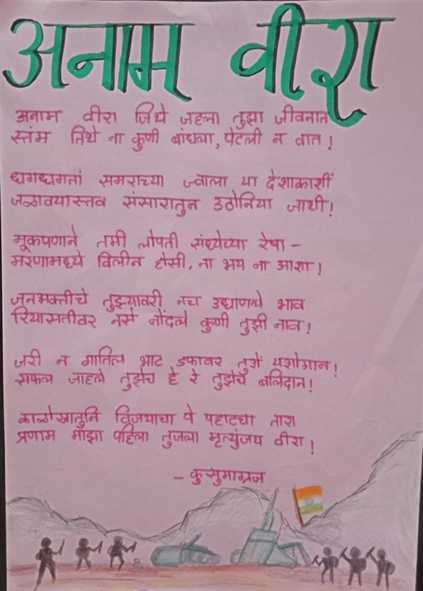 अनाम वीरा
अनाम वीरा जिथे जहला तुझा जीवनात
स्तंभ तिथे ना कुणी बांधला, पेटली न वात!
धगधगतां समराच्या ज्वाला या देशाकाशीं
जळावयास्तव संसारातुन उठोनिया जाशी!
मूकपणाने तमी लोपती संध्येच्या रेषा -
मरणामध्ये विलीन होसी, ना भय ना आशा!
जनभक्तीचे तुझ्यावरी नच उधाणले भाव
रियासतीवर नसे नोंदले कुणी तुझी नाव!
जरी न गातिल भाट डफावर तुझें यशोगान!
सफल जाहले तुझेच हे रे तुझेच बलिदान!
काळोखातुनि विजयाचा ये पहाटचा तारा
प्रणाम माझा पहिला तुजला मृत्युंजय वीरा!
- कुसुमाग्रज